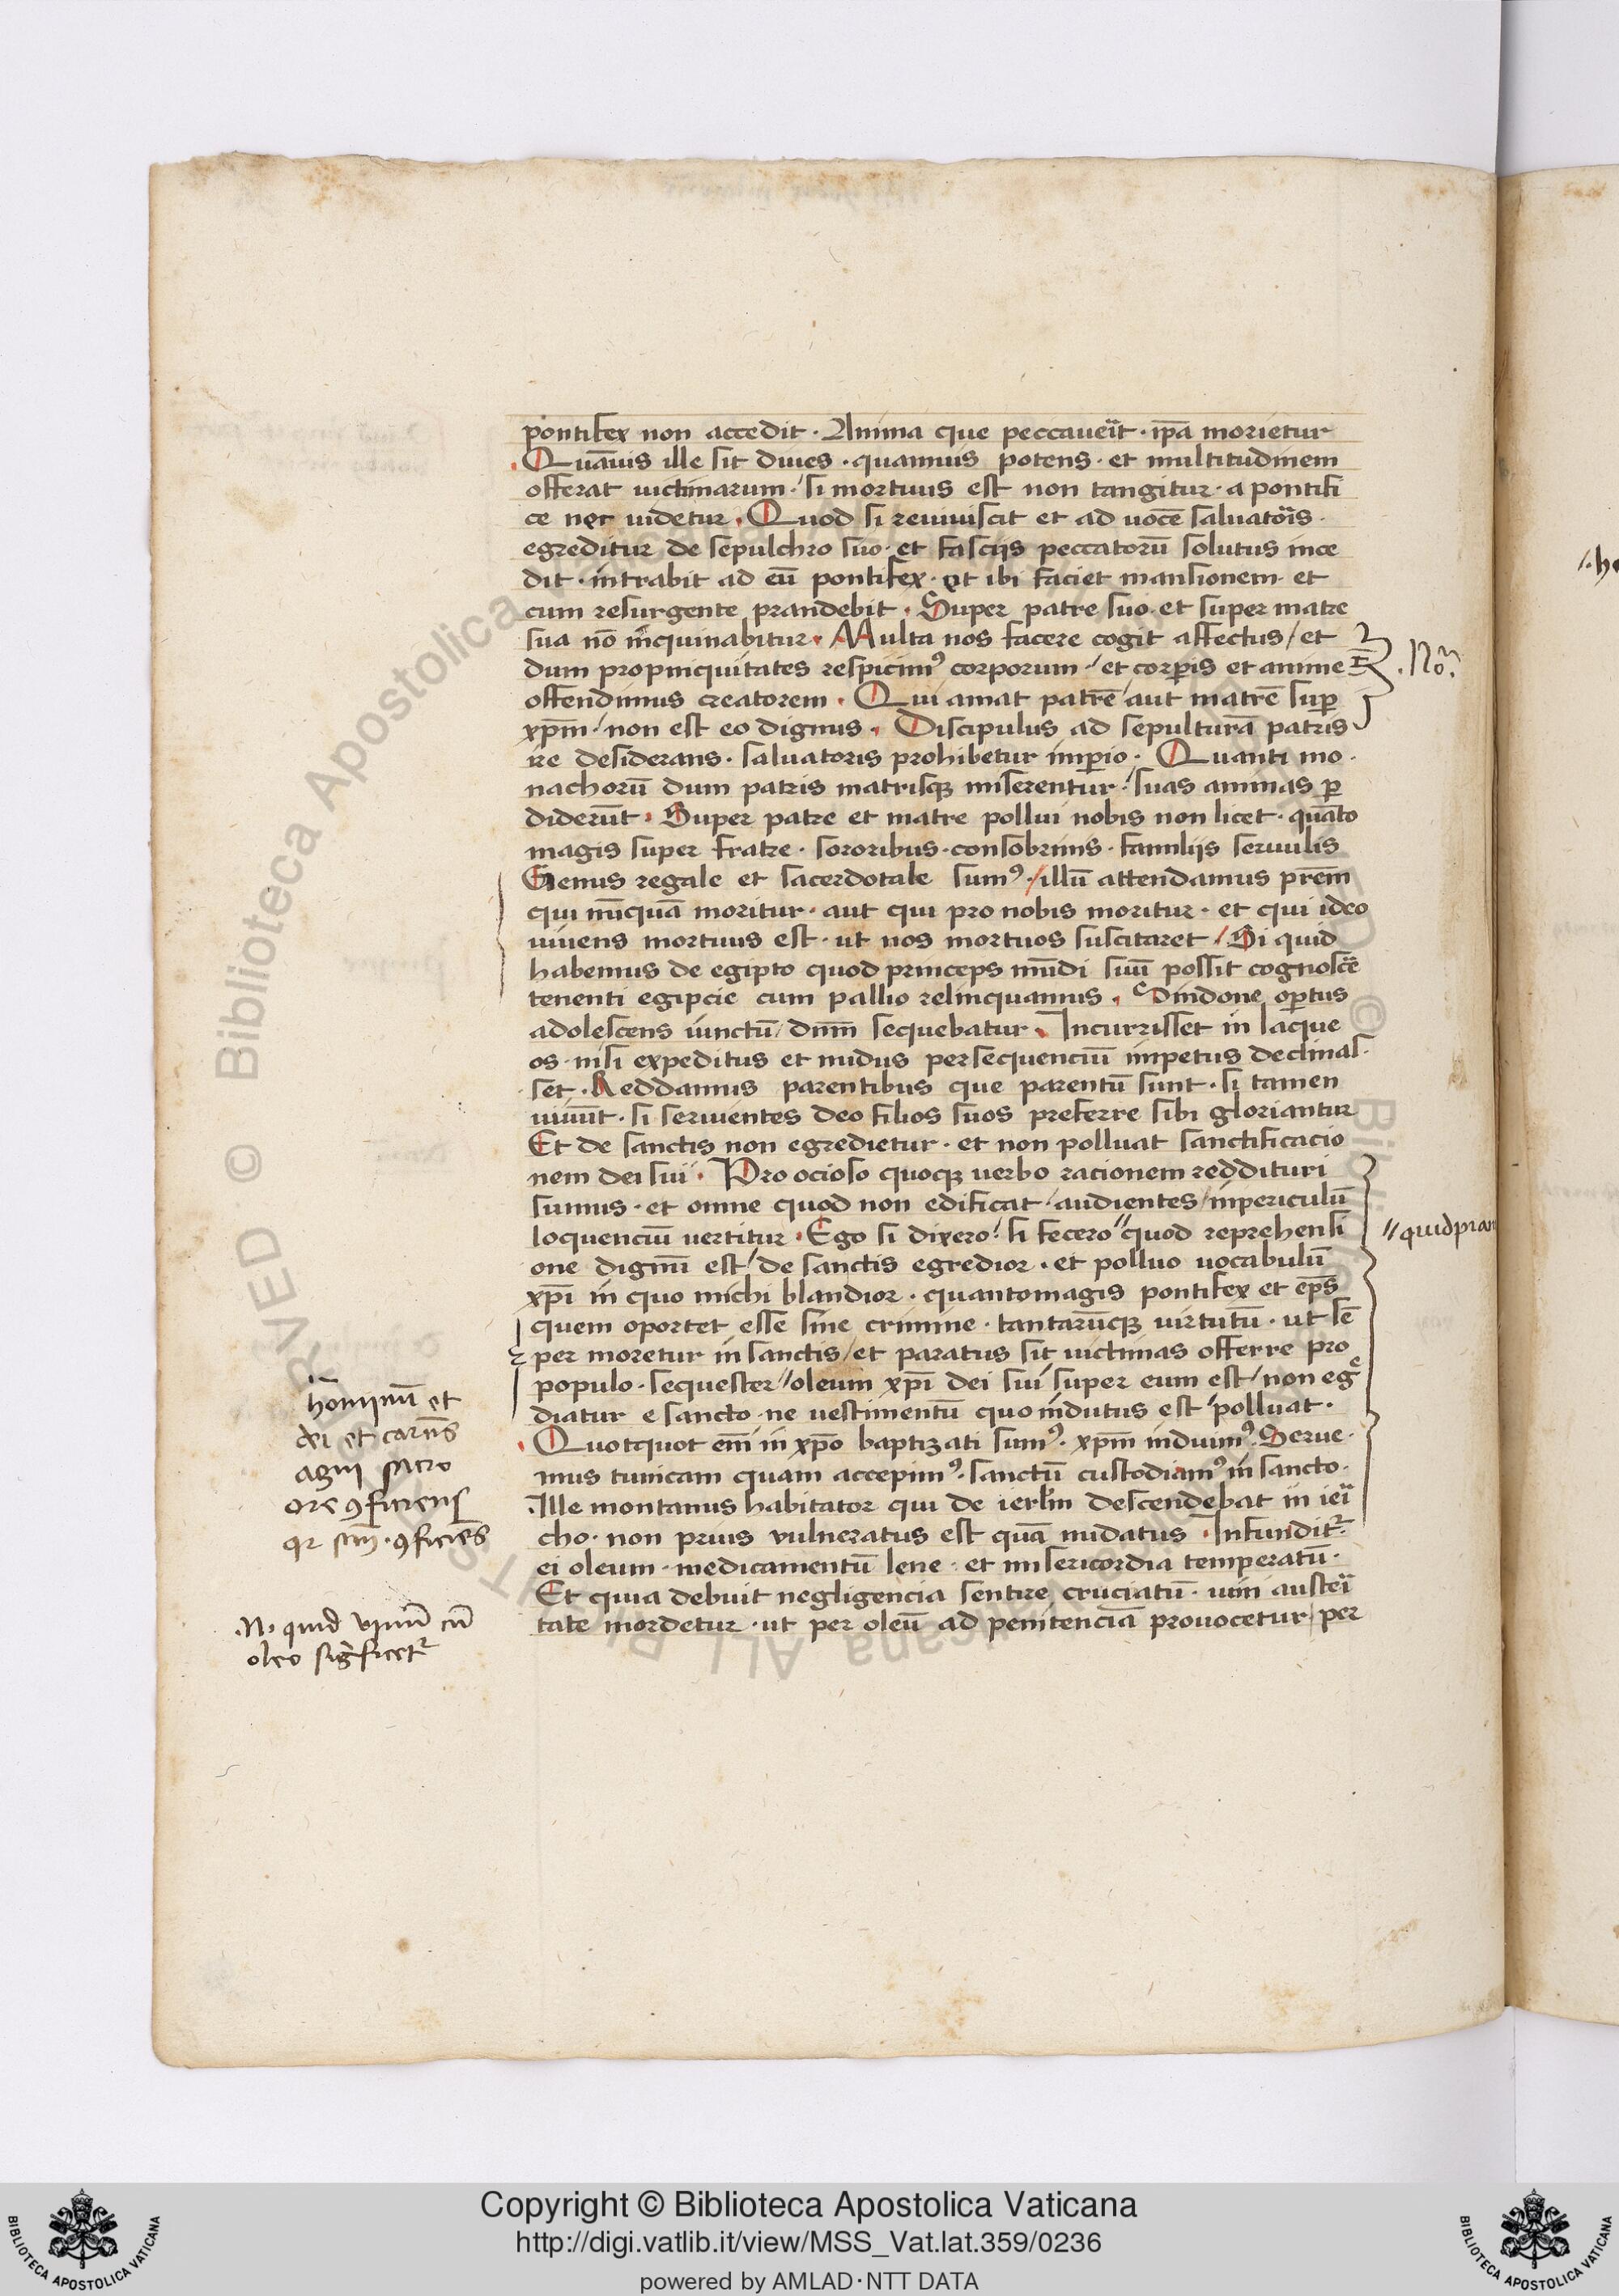 pontifex non accedit · Anima que peccauerit · ip̄a morietur
Quāuis ille sit diues · quamuis potens · et multitudinem
offerat uictimarum · si mortuus est non tangitur · a pontifi
ce nec uidetur · Quod si reuiuiscit et ad uocē saluatoris ·
egreditur de sepulchro suo · et fasciis peccatorū solutus ince
dit · intrabit ad eū pontifex · et ibi faciet mansionem · et
cum resurgente prandebit · Super patre suo · et super matre
sua nō inquinabitur · Multa nos facere cogit affectus / et
dum propinquitates respicimꝰ corporum · / et corꝑis et anime
offendimus creatorem · Qui amat patrē / aut matrē suꝑ
xp̄m / non est eo dignus · Discipulus ad sepulturā patris
ire desiderans · saluatoris prohibetur imꝑio · Quanti mo ·
nachorū dum patris matrisqꝫ miserentur / suas animas ꝑ
diderūt · Super patre et matre pollui nobis non licet · quāto
magis super fratre · sororibus · consobrinis · familiis seruulis
Genus regale et sacerdotale sumꝰ · / illū attendamus pr̄em
qui nūquā moritur · aut qui pro nobis moritur · et qui ideo
uiuens mortuus est · ut nos mortuos suscitaret / Si quid
habemus de egipto quod princeps mūdi suū possit cognoscē
tenenti egipcie cum pallio relinquamus · Sindone oꝑtus
adolescens iunctū / dn̄m sequebatur · Incurrisset in laque
os · nisi expeditus et nudus persequenciū impetus declinas ·
set · Reddamus parentibus que parentū sunt · si tamen
uiuūt · si seruientes deo filios suos preferre sibi gloriantur
Et de sanctis non egredietur · et non polluat sanctificacio
nem dei sui · Pro ocioso quoqꝫ uerbo racionem reddituri
sumus · et omne quod non edificat / audientes / in periculū
loquenciū uertitur · Ego si dixero / si fecero // quod reprehensi
one dignū est / de sanctis egredior · et polluo uocabulū
xp̄i in quo michi blandior · quantomagis pontifex et ep̄s
quem oportet esse sine crimine · tantarūqꝫ uirtutū · ut sē
per moretur in sanctis / et paratus sit uictimas offerre pro
populo · sequester // oleum xp̄i dei sui super eum est / non egͤ
diatur e sancto · ne uestimentū quo indutus est / polluat ·
Quotquot em̄ in xp̄o baptizati sumꝰ · xp̄m induimꝰ · Serue ·
mus tunicam quam accepimꝰ · sanctū custodiamꝰ in sancto ·
Ille montanus habitator qui de ierl̄m descendebat in ieri
cho · non prius vulneratus est quā nudatus · Infunditᷣ
ei oleum · medicamentū lene · et misericordia temperatū ·
Et quia debuit negligencia sentire cruciatū · uini austeri
tate mordetur · ut per oleū ad penitenciā prouocetur / per
· No͞ ·
// quid pran
hominū et
dei et carnes
agni sacro
ore ꝯficiens
ꝯficiēs
· N · quid vinū cū
oleo significetᷣ
Copyright © Biblioteca Apostolica Vaticana
http://digi.vatlib.it/view/MSS_Vat.lat.359/0236
powered by AMLAD·NTT DATA
BIBLIOTECA APOSTOLICA VATICANA
BIBLIOTECA APOSTOLICA VATICANA